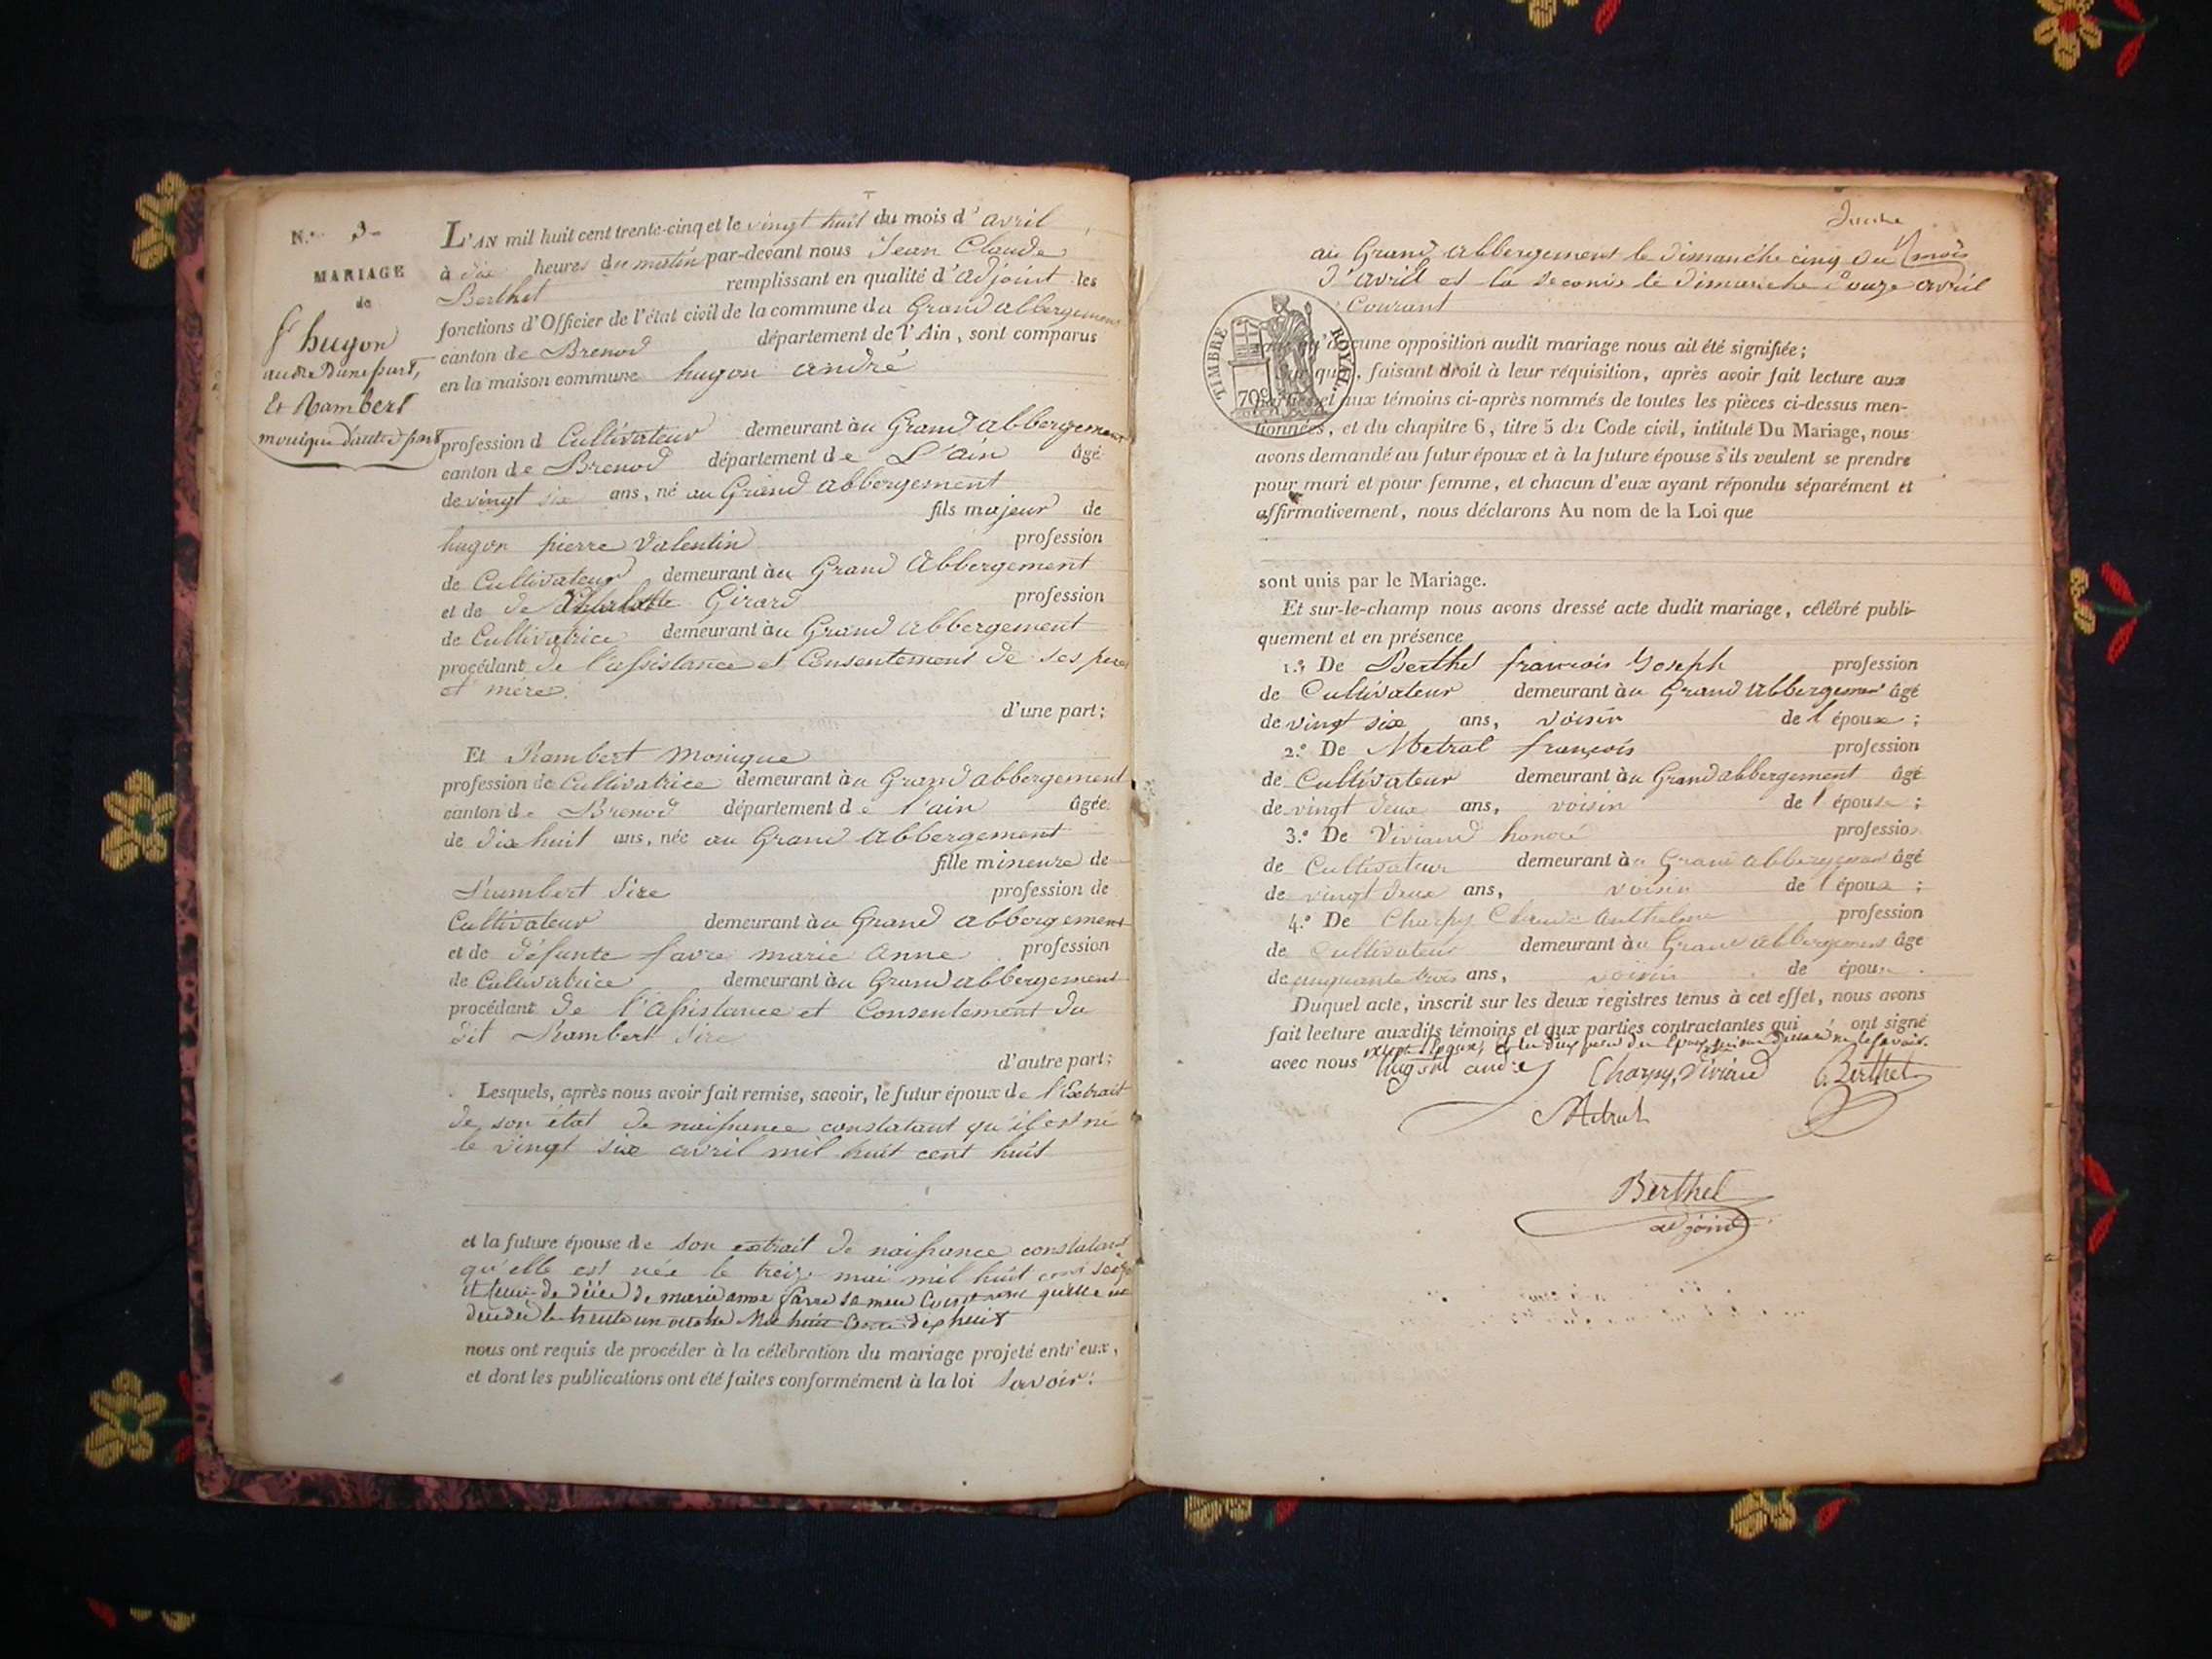 N.° 3
MARIAGE
de
hugon
andré D'une part,
Et Rambert
monique D'autre part
L'AN mil huit cent trente-cinq et le vingt huit du mois d'avril
à dix heures du matin par-devant nous Jean Claude
Berthet remplissant en qualité d'adjoint les
fonctions d'Officier de l'état civil de la commune du Grand abbergement
canton de Brenod département de l'Ain, sont comparus
en la maison commune hugon andré
profession d Cultivateur demeurant au Grand abbergement
canton de Brenod département de L'ain âgé
de vingt six ans, né au Grand abbergement
fils majeur de
hugon pierre Valentin profession
de Cultivateur demeurant àu Grand Abbergement
et de de Girard profession
de Cultivatrice demeurant àu Grand abbergement
procédant de l'assistance et Consentement de ses pere
et mère
d'une part;
Et Rambert Monique
profession de Cultivatrice demeurant àu Grand abbergement
canton de Brenod département de l'ain âgée
de dix huit ans, née au Grand Abbergement
fille mineure de
Rambert Sixe profession de
Cultivateur demeurant àu Grand abbergement
et de défunte favre marie Anne profession
de Cultivatrice demeurant àu Grand abbergement
procédant de l'assistance et Consentement du
dit Rambert
d'autre part;
Lesquels, après nous avoir fait remise, savoir, le futur époux de l'Extrait
de son état de naissance constatant qu'il est né
le vingt six avril mil huit cent huit
et la future épouse de son extrait de naissance constatant
qu'elle est née le treize mai mil huit cent seize
et celui de décé de marie anne favre sa mere qu'elle est
décédée le trente un octobre Mil huit Cent dix huit
nous ont requis de procéder à la célébration du mariage projeté entr'eux,
et dont les publications ont été faites conformément à la loi Savoir:
au Grand abbergement le dimanche cinq du mois
d'avril et la seconde le dimanche douze avril
Courant
TIMBRE ROYAL
70c
aucune opposition audit mariage nous ait été signifiée;
faisant droit à leur réquisition, après avoir fait lecture aux
aux témoins ci-après nommés de toutes les pièces ci-dessus men-
tionnées, et du chapitre 6, titre 5 du Code civil, intitulé Du Mariage, nous
avons demandé au futur époux et à la future épouse s'ils veulent se prendre
pour mari et pour femme, et chacun d'eux ayant répondu séparément et
affirmativement, nous déclarons Au nom de la Loi que
sont unis par le Mariage.
Et sur-le-champ nous avons dressé acte dudit mariage, célébré publi-
quement et en présence
1.° De Berthet francois Joseph profession
de Cultivateur demeurant àu Grand abbergement âgé
de vingt six ans, voisin de l époux ;
2.° De Metral françois profession
de Cultivateur demeurant àu Grand abbergement âgé
de vingt deux ans, voisin de l épouse ;
3.° De Viviand honoré profession
de Cultivateur demeurant àu Grand abbergement âgé
de vingt deux ans, voisin de l époux ;
4.° De Charpy Claude Anthelme profession
de Cultivateur demeurant àu Grand abbergement âgé
de cinquante trois ans, voisin de épou
Duquel acte, inscrit sur les deux registres tenus à cet effet, nous avons
fait lecture auxdits témoins et aux parties contractantes qui ont signé
avec nous
hugon andré Charpy, Viviand Berthet
Metral
Berthet
adjoint